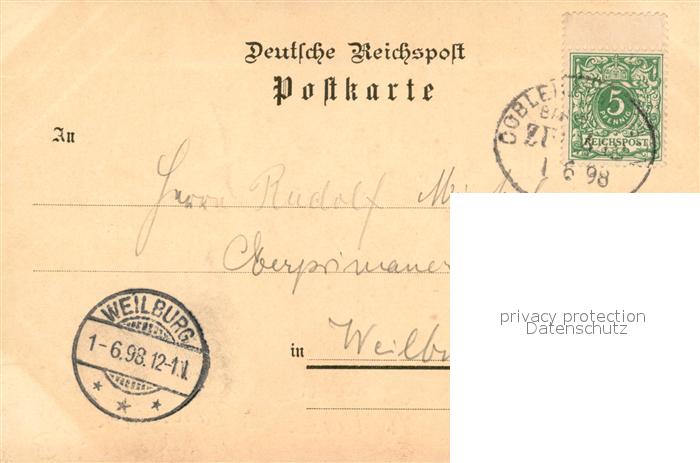 Deutsche Reichspost
Postkarte
5
PFENNIG
REICHSPOST
COBLENZ
1 6 98
An
Herrn Rudolf
Oberprimaner
in Weilbu
WEILBURG
1-6.98.12-1.V.
privacy protection
Datenschutz